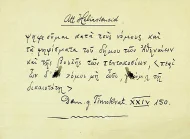 Att. Heliasteneid
ψηφιοῦμαι κατὰ τοὺς νόμους καὶ
τὰ ψηφίσματα τοῦ δήμου τῶν Ἀθηναίων
καὶ τῆς βουλῆς τῶν πεντακοσίων, (περὶ
ὧν ἂν νόμοι μὴ ὦσι, γνώμῃ τῇ
δικαιοτάτῃ)
Dem. g. Timokrat. XXIV 150.